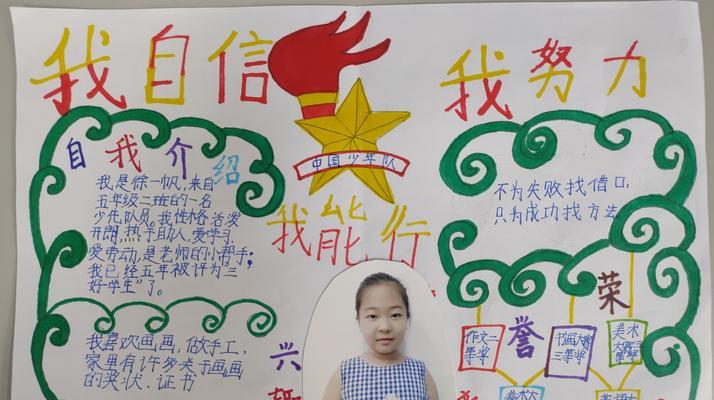 我自信
我努力
中国少年队
我能行
自我介绍
我是徐一帆,来自
五年级二班的一名
少先队员,我性格活泼
开朗,热于助人,爱学习,
爱劳动,是老师的小帮手;
我已经五年被评为“三
好学生”了。
我喜欢画画,做手工,
家里有许多关于画画
的奖状、证书
兴
不为失败找借口,
只为成功找方法
荣
誉
作文二
等奖
书画大赛
三等奖
美术
等奖